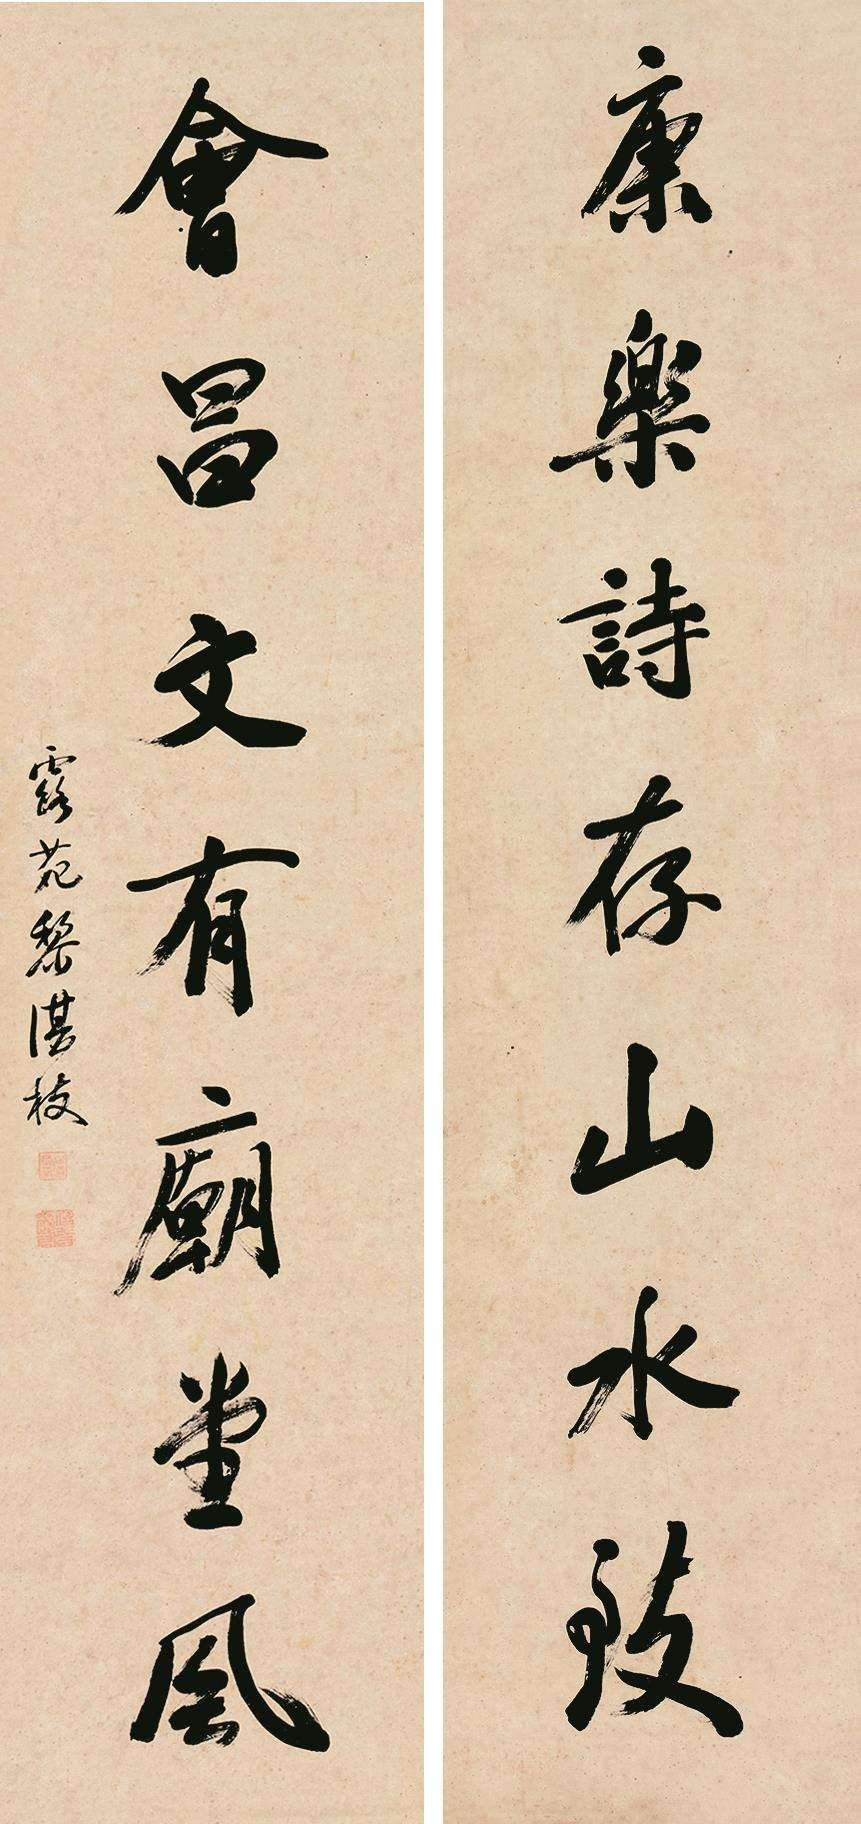 康樂詩存山水致
會昌文有廟堂風
露苑黎湛枝